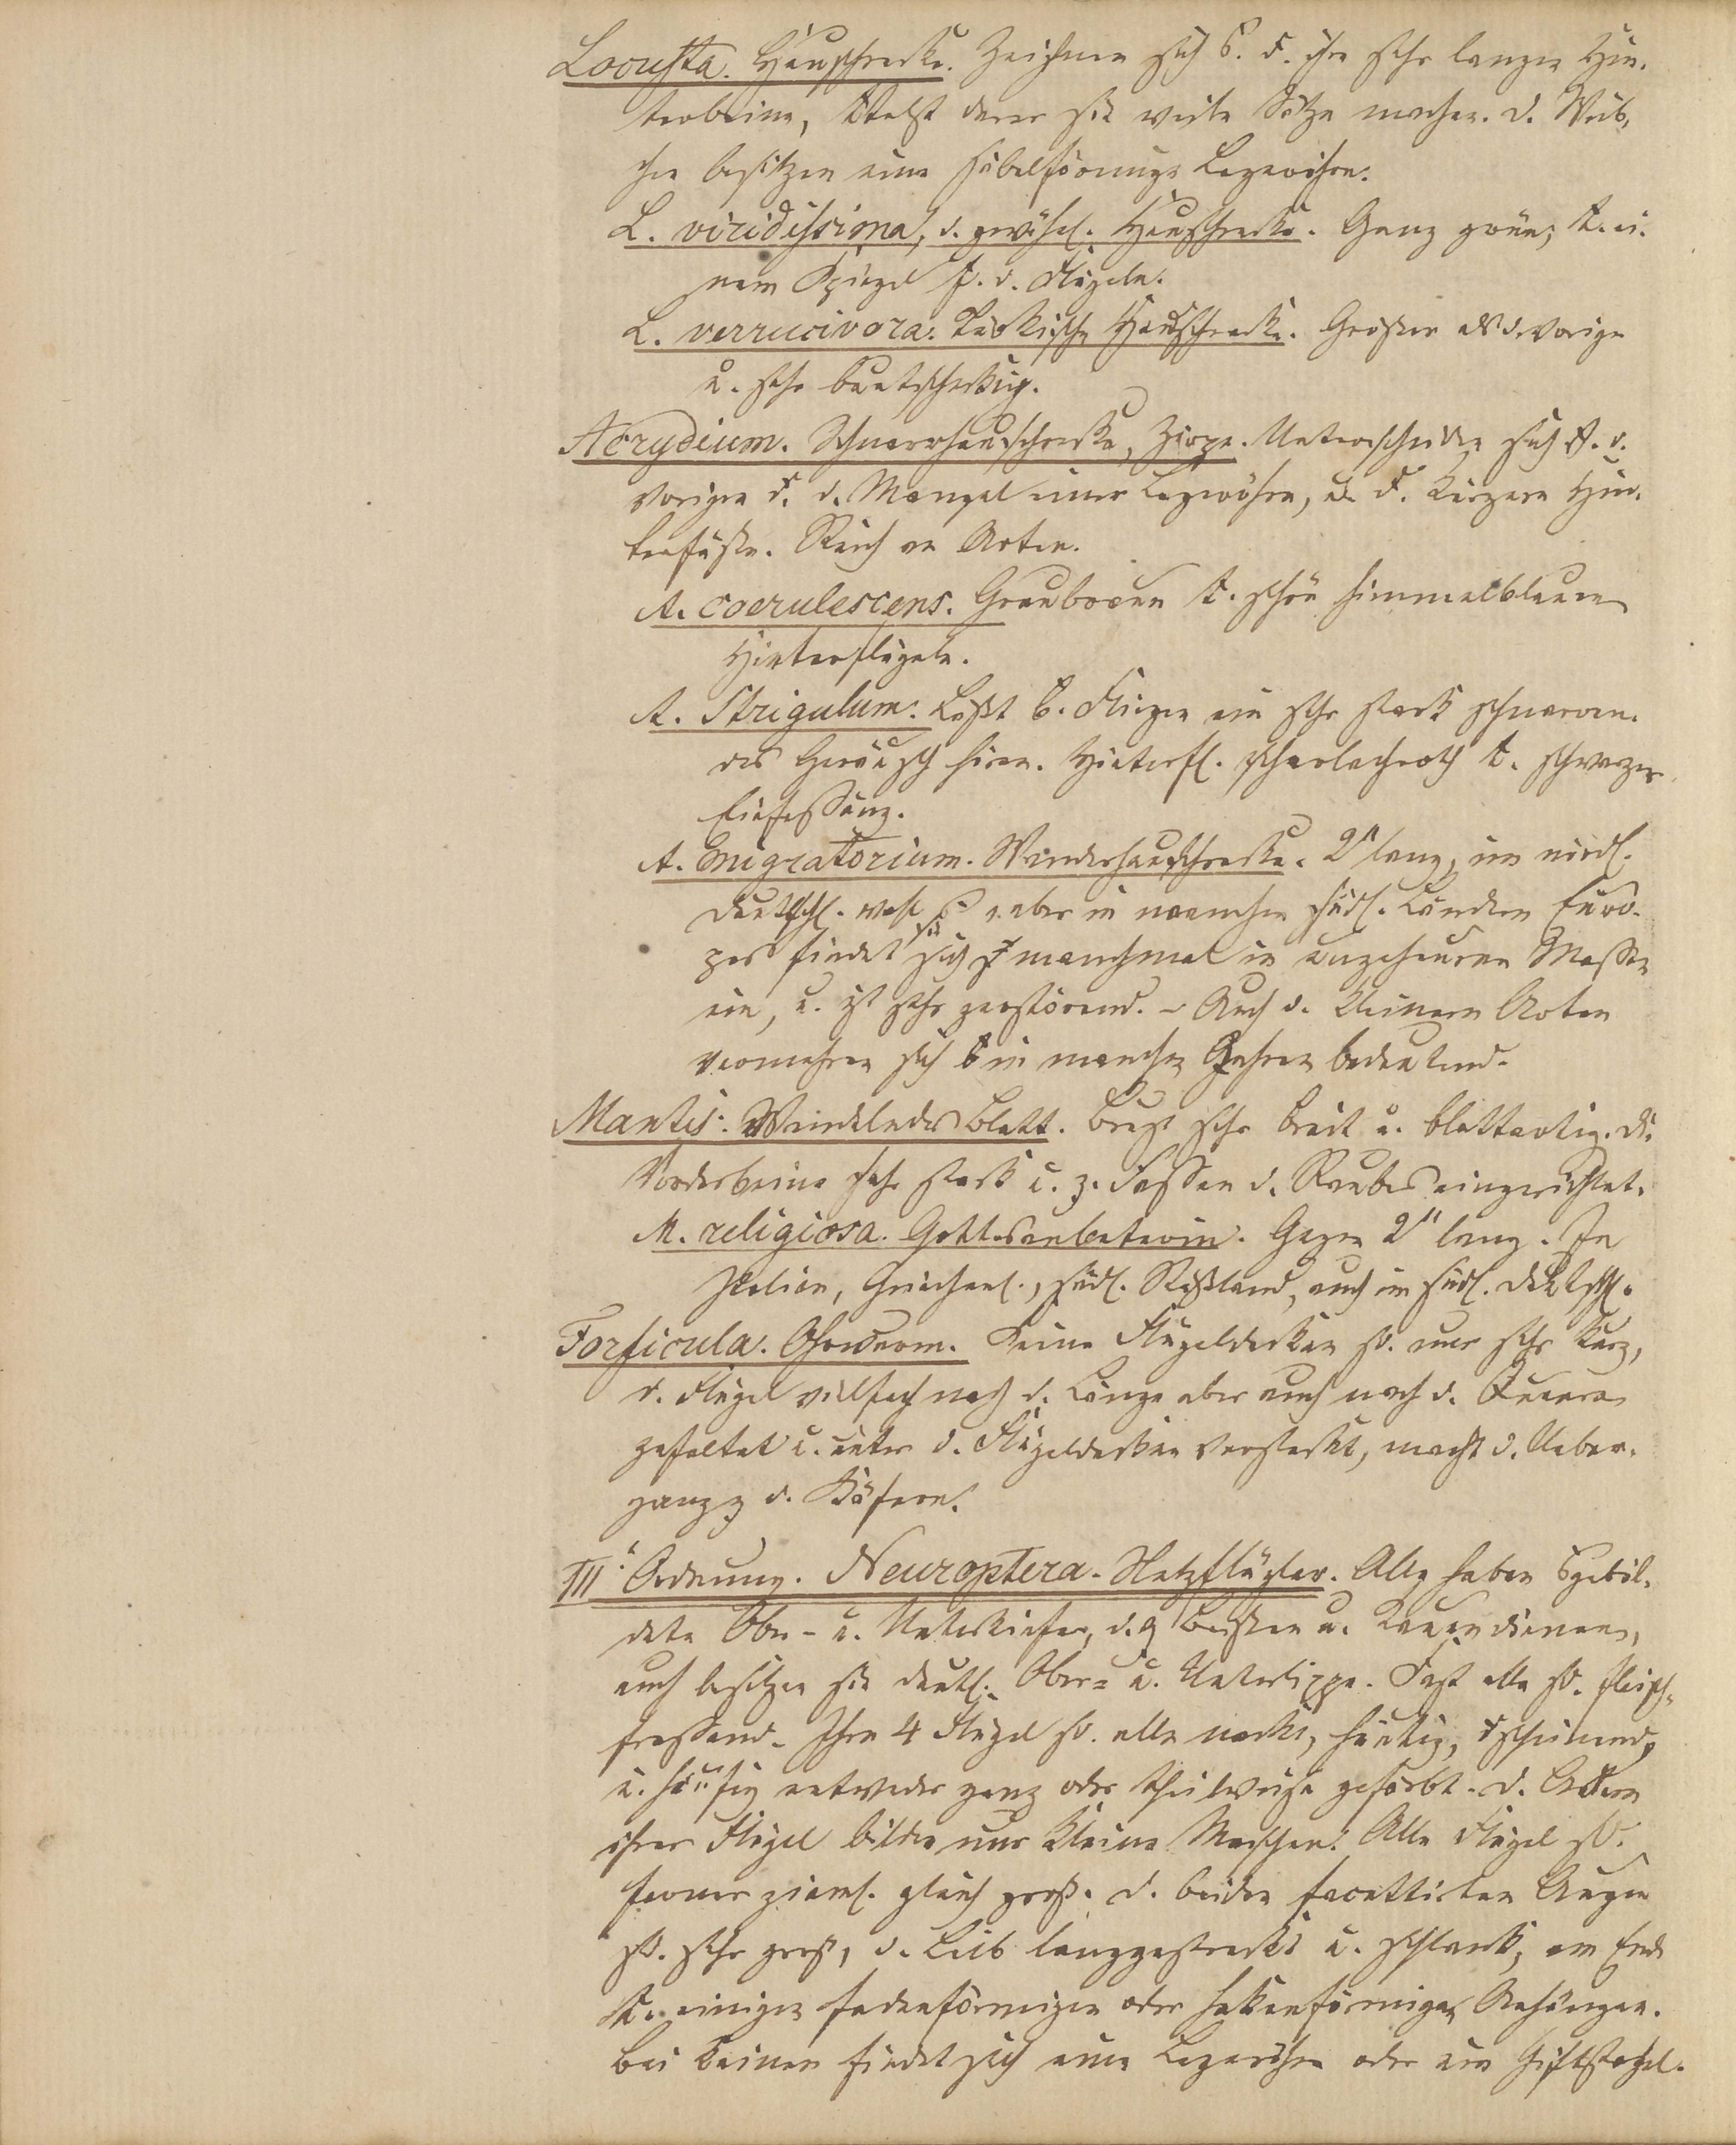 Locusta. Heuschrecke. Zeichnen sich d. ihre sehr langen Hin-
terbeine, mittelst derer sie weite Sätze machen. D. Weib-
chen besitzen eine säbelförmige Legeröhre.
L. viridissima, d. gewöhnl. Heuschrecke. Ganz grün; m. ei-
nem Spiegel a. d. Flügeln.
L. verrucivora. Heuschrecke. Grösser als d. vorige
u. sehr buntscheckig.
Acrydium. Schnarrheuschrecke, Zirpe. Unterscheiden sich v. d.
vorigen d. d. Mangel einer Legeröhre, u. d. kürzere Hin-
terfüsse. Reich an Arten.
A. coerulescens. Graubraun m. schön himmelblauen
Hinterflügeln.
A. Strigulum. Lässt b. Fliegen ein sehr stark schnarren-
des Geräusch hören. Hinterfl. scharlachroth m. schwarzer
Einfassung.
A. migratorium. Wanderheuschrecke. 2" lang, im nördl.
Deutschl. aber in manchen südl. Ländern Euro-
pas findet sie sich manchmal in ungeheuren Massen
ein, u. ist sehr zerstörend. – Auch d. kleinern Arten
vermehren sich in manchen Jahren bedeutend.
Mantis. Wandelndes Blatt. Brust sehr breit u. blattartig. D.
Vorderbeine sehr stark u. z. Fassen d. Raubes eingerichtet.
M. religiosa. Gottesanbeterin. Gegen 2" lang. In
Italien, Griechenl., südl. Russland, auch im südl. Deutschl.
Forficula. Ohrwurm. Seine Flügeldecken sd. nur sehr kurz,
d. Flügel vielfach nach d. Länge aber auch nach d. Queere
gefaltet u. unter d. Flügeldecken versteckt, macht d. Ueber-
gang z. d. Käfern.
III. Ordnung. Neuroptera. Netzflügler. Alle haben ausgebil-
dete Ober- u. Unterkiefer, d. z. Beissen u. Kauen dienen,
auch besitzen sie deutl. Ober- u. Unterlippe. Fast alle sd. fleisch-
fressend. Ihre 4 Flügel sd. alle nackt, häutig, durchscheinend,
u. häufig entweder ganz oder theilweise gefärbt. D. Adern
ihrer Flügel bilden nur kleine Maschen. Alle Flügel sd.
ferner zieml. gleich gross. D. beiden facettirten Augen
sd. sehr gross, d. Leib langgestreckt u. schlank, am Ende
m. einigen fadenförmigen oder hakenförmigen Anhängen.
Bei keinen findet sich eine Legeröhre oder ein Giftstachel.